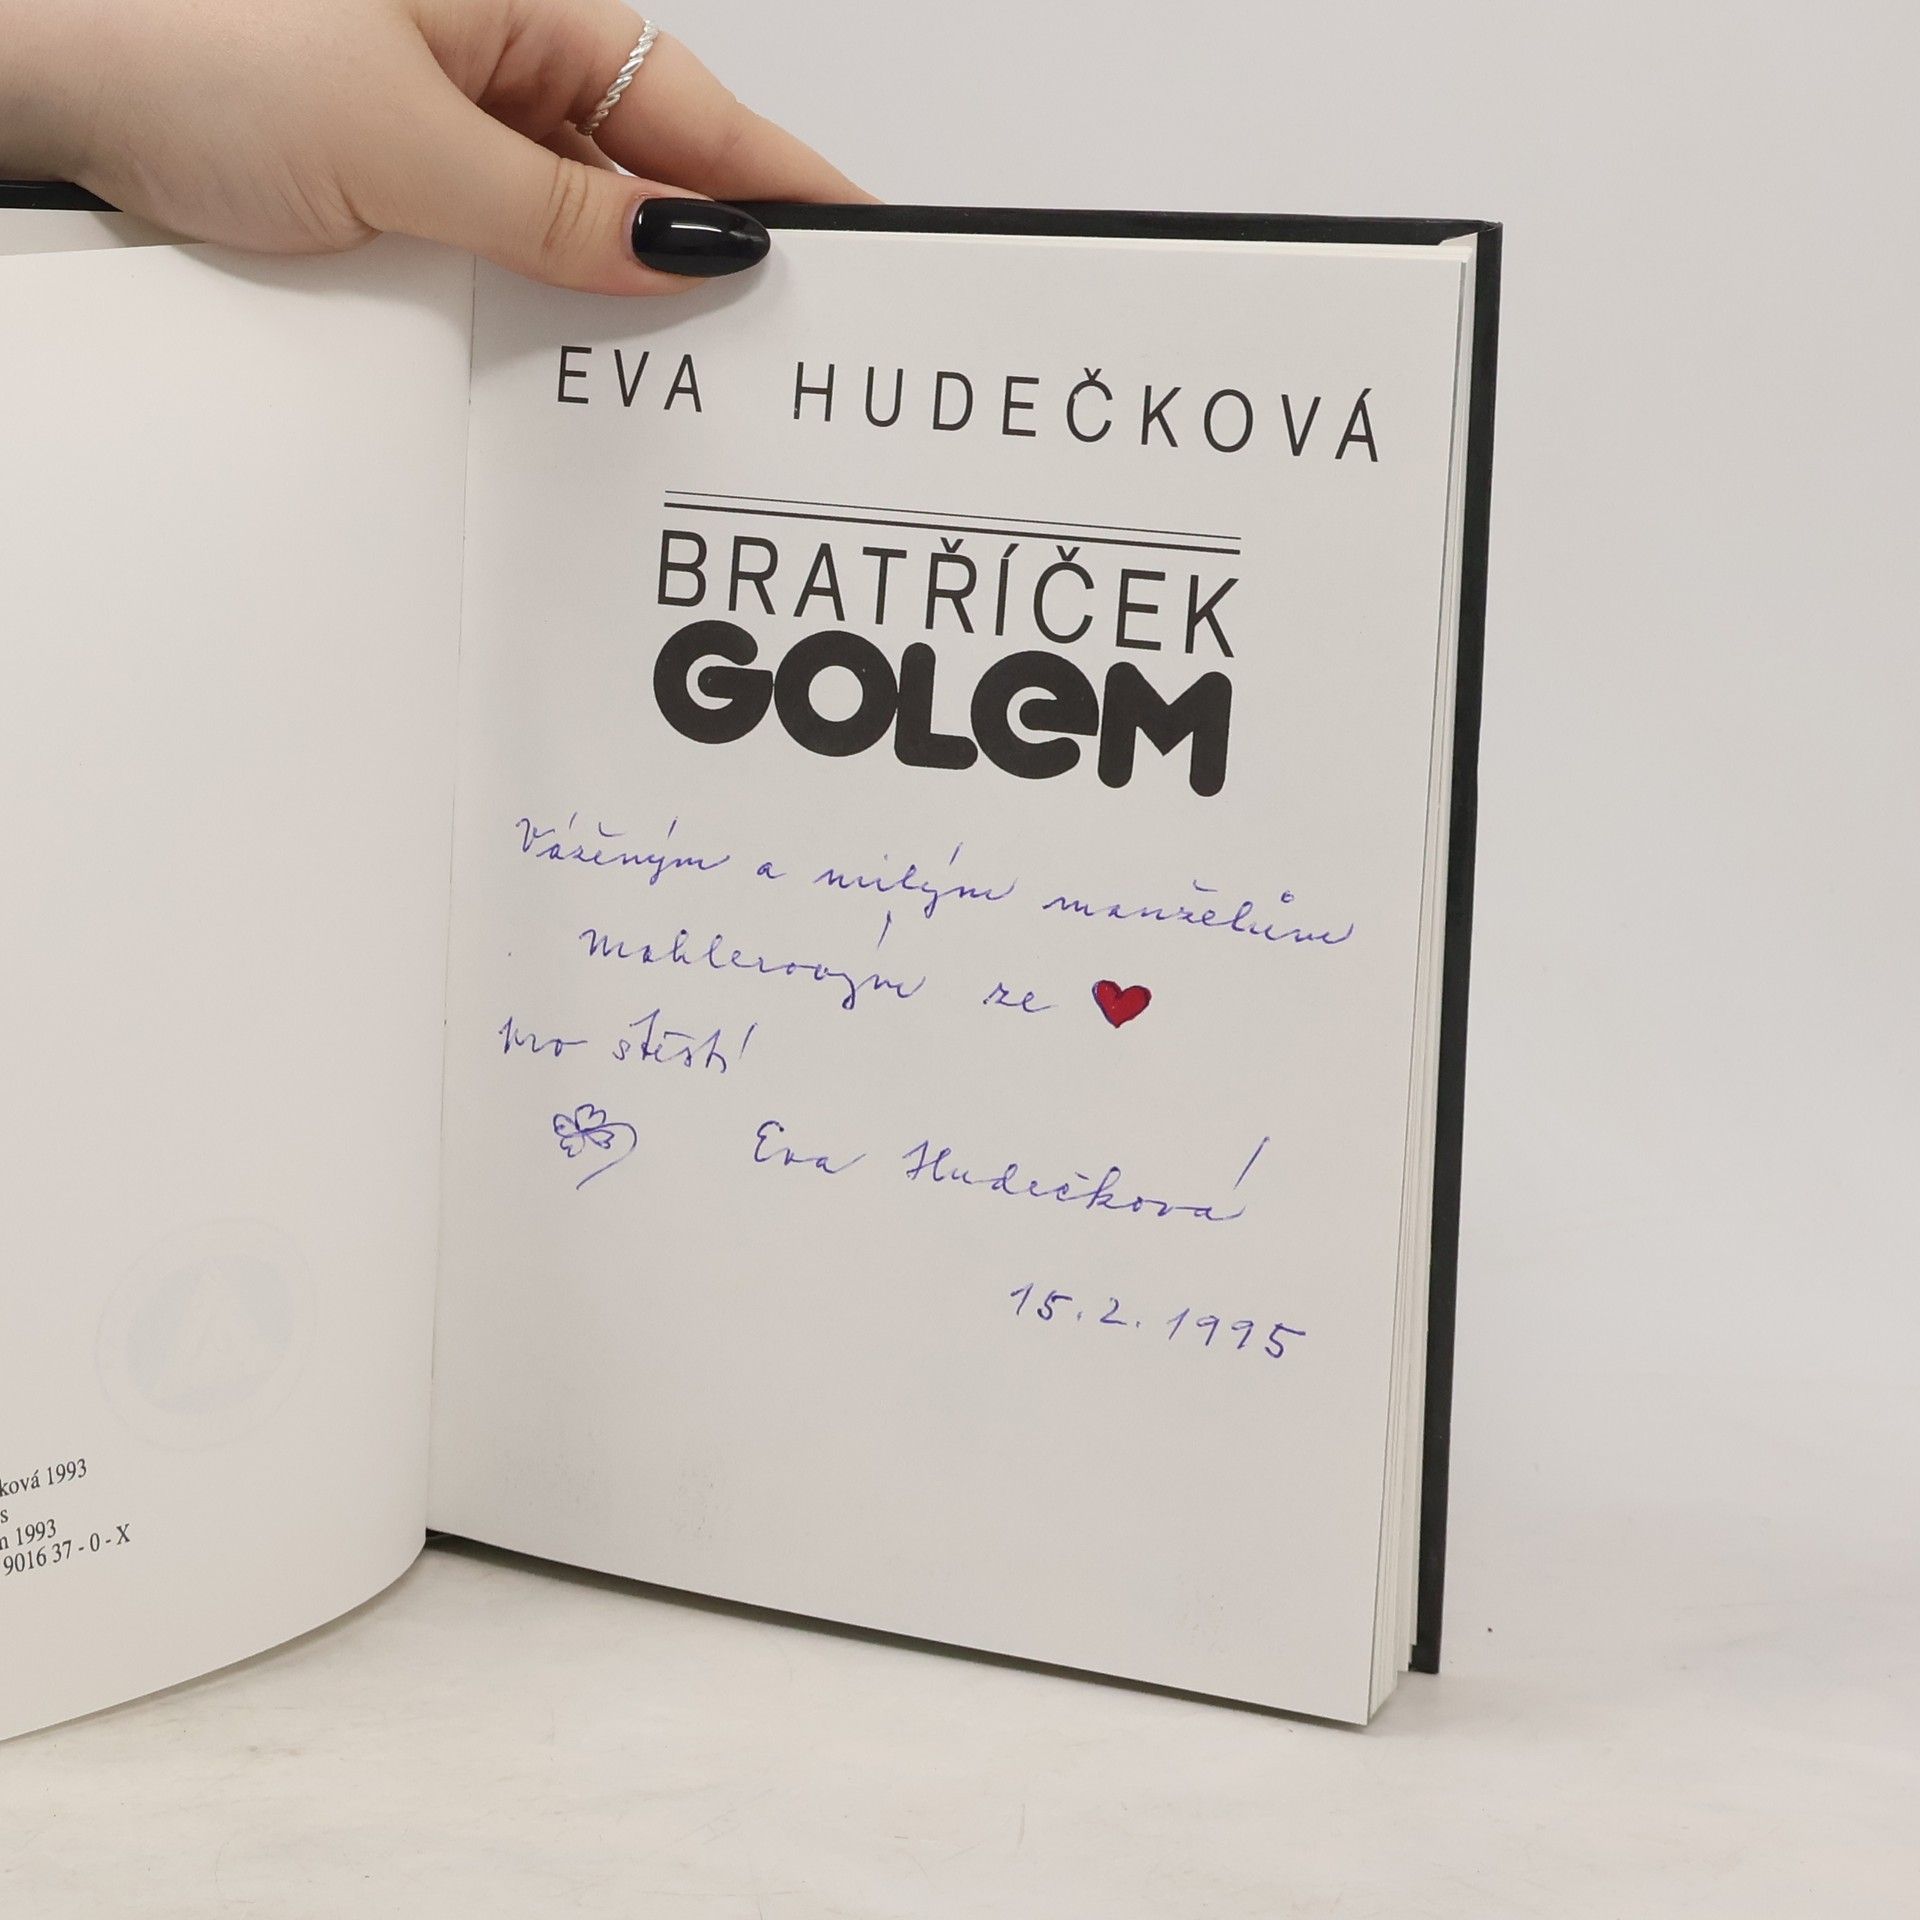 EVA HUDEČKOVÁ
BRATŘÍČEK
GOLEM
Váženým a milým manželům
Mahlerovým ze ❤
pro štěstí
Eva Hudečková
15.2.1995
ková 1993
s
n 1993
9016 37 - 0 - X